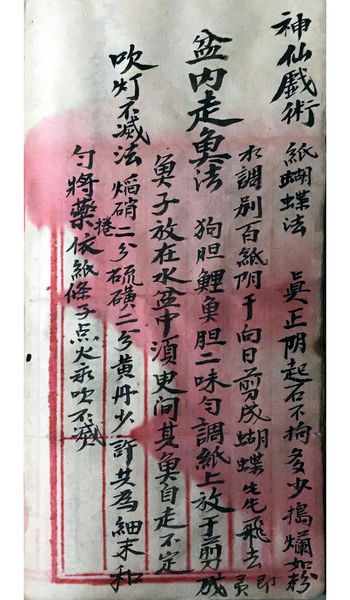 神仙戲術 紙蝴蝶法 眞正阴起石不拘多少搗爛如粉
水調刷百紙阴干向日剪成蝴蝶飛去即灵
盆内走魚法 狗胆鯉魚胆二味匀調紙上放于剪成
魚子放在水盆中須臾间其魚自走不定
吹灯不滅法 焰硝二分硫磺二分黄丹少許共為細末和
匀將藥捲依紙條子点火永吹不滅